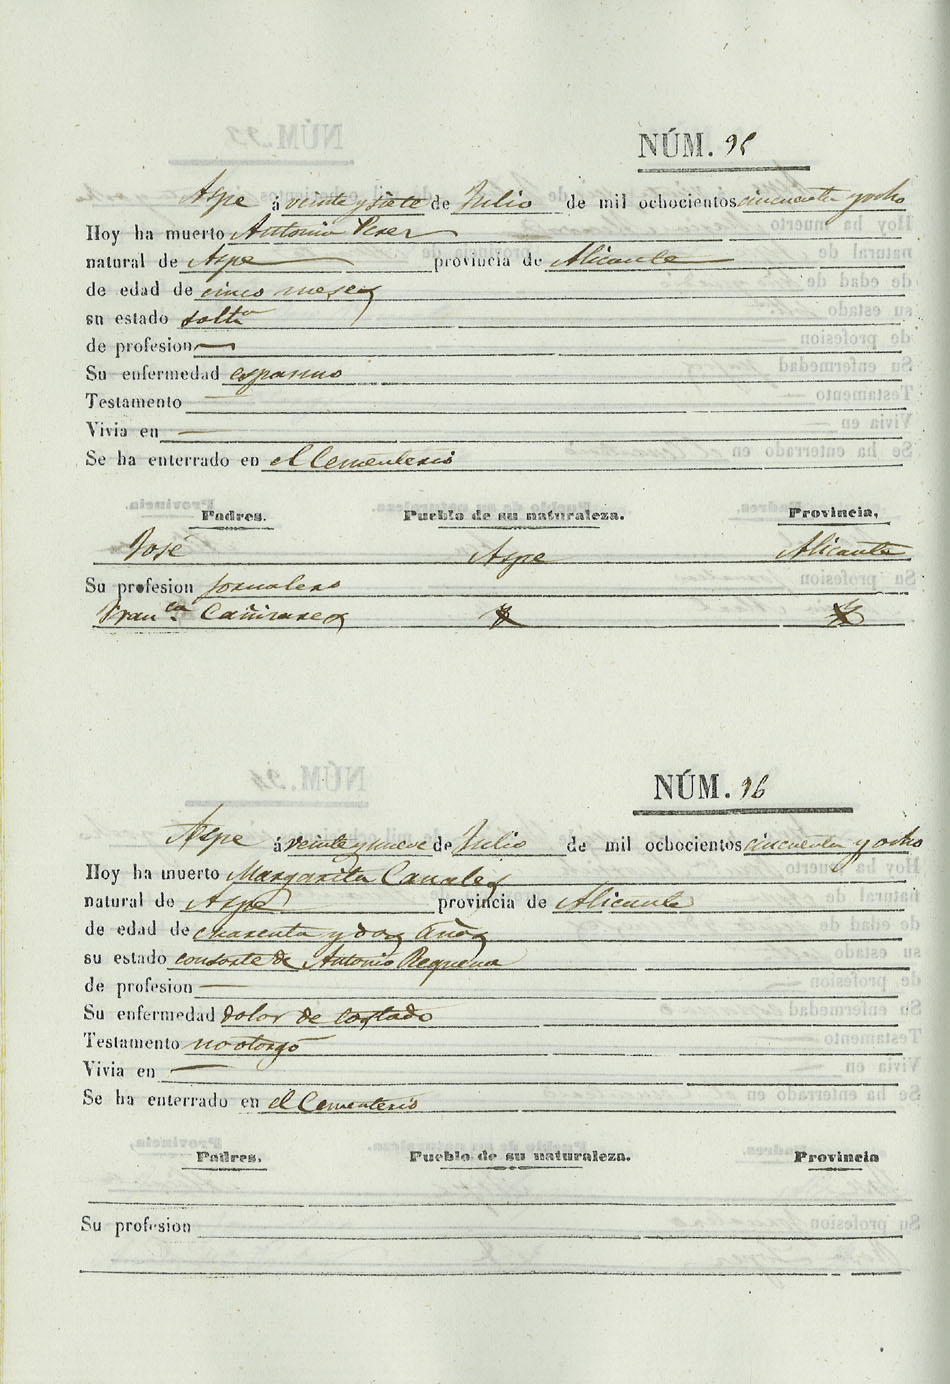 NÚM. 95
Aspe á veinte y siete de Julio de mil ochocientos cincuenta y ocho
Hoy ha muerto Antonia Perez
natural de Aspe provincia de Alicante
de edad de cinco meses
su estado solt.ª
de profesion —
Su enfermedad espasmo
Testamento —
Vivia en —
Se ha enterrado en el Cementerio
Padres. Pueblo de su naturaleza. Provincia,
José Aspe Alicante
Su profesion jornalero
Fran.ca Cañizares
NÚM. 96
Aspe á veinte y nueve de Julio de mil ochocientos cincuenta y ocho
Hoy ha muerto Margarita Canales
natural de Aspe provincia de Alicante
de edad de cuarenta y dos años
su estado consorte de Antonio Requena
de profesion —
Su enfermedad dolor de costado
Testamento no otorgó
Vivia en —
Se ha enterrado en el Cementerio
Padres. Pueblo de su naturaleza. Provincia
Su profesion